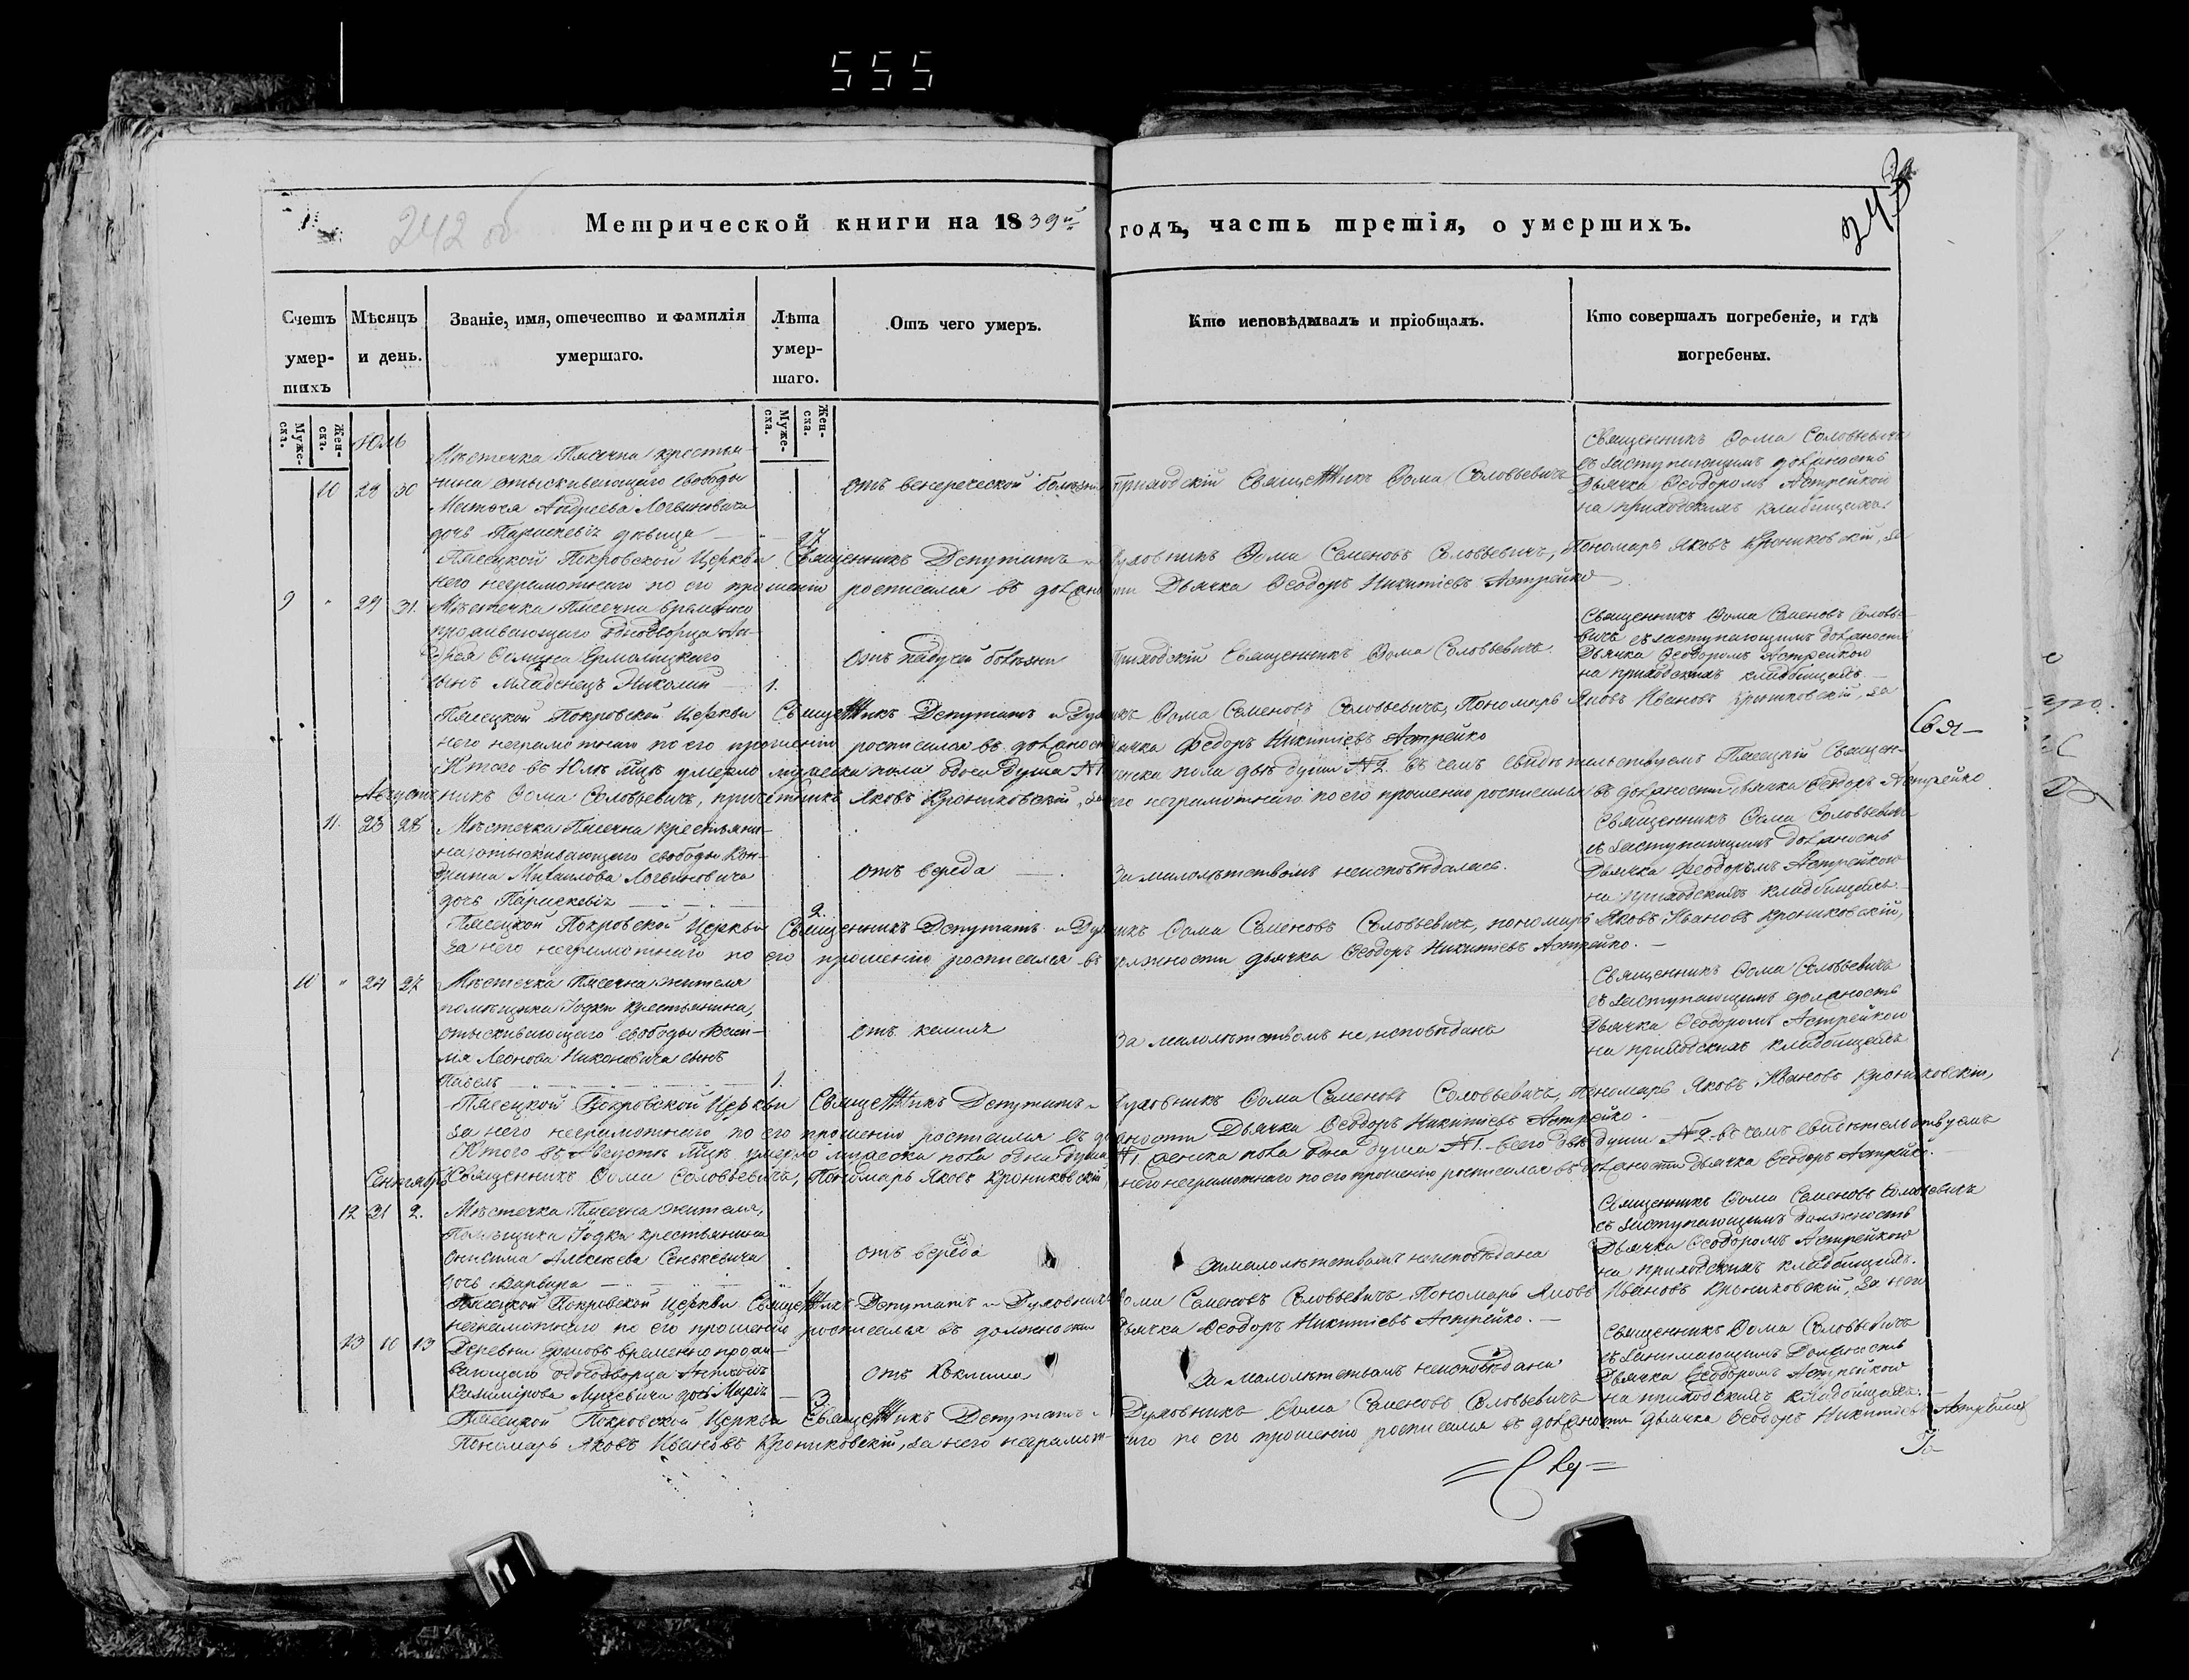 555
242 об
Метрической книги на 1839й годъ, часть третія, о умершихъ.
243
Счетъ умер-шихъ
Мѣсяцъ и день.
Званіе, имя, отечество и фамилія умершаго.
Лѣта умер-шаго.
Отъ чего умеръ.
Кто исповѣдывалъ и пріобщалъ.
Кто совершалъ погребеніе, и гдѣ погребены.
Муже-ска.
Жен-ска.
Муже-ска.
Жен-ска.
Юль
10 28 30
Мѣстечка Пясечна крестья-
нина отыскивающаго свободы
Матѳея Андреева Логвиновича
дочь Параскевія дѣвица
27
отъ венерической болѣзни
Приходскій Священникъ Ѳома Соловьевичъ
Священникъ Ѳома Соловьевичъ
съ заступающимъ должность
Дьячка Ѳеодоромъ Астрейкою
на приходскихъ кладбищахъ
Пясецкой Покровской Церкви Священникъ Депутатъ и Духовникъ Ѳома Семеновъ Соловьевичъ, Пономарь Яковъ Крониковскій, за
него неграмотнаго по его прошенію росписался въ должности Дьячка Ѳеодоръ Никитіевъ Астрейко
9 " 29 31.
Мѣстечка Пясечна временно
проживающаго однодворца
Ермолицкаго
сынъ младенецъ Николай
1.
отъ падучей болѣзни
Приходскій Священникъ Ѳома Соловьевичъ
Священникъ Ѳома Семеновъ Соловье-
вичъ съ заступающимъ должность
Дьячка Ѳеодоромъ Астрейкою
на приходскихъ кладбищахъ.
Пясецкой Покровской Церкви Священникъ Депутатъ и Духовникъ Ѳома Семеновъ Соловьевичъ, Пономарь Яковъ Ивановъ Крониковскій, за
него неграмотнаго по его прошенію росписался въ должности Дьячка Ѳеодоръ Никитіевъ Астрейко
Свя-
Итого въ Юлѣ мцѣ умерло мужеска пола одна душа №1 женска пола двѣ души №2. въ чемъ свидѣтельствуемъ Пясецкій Священ-
Августъ
никъ Ѳома Соловьевичъ, причетникъ Яковъ Крониковскій, за него неграмотнаго по его прошенію росписался въ должности дьячка Ѳеодоръ Астрейко
11. 23 28
Мѣстечка Пясечна крестьяни-
на, отыскивающаго свободы Кон-
драта Михаилова Логвиновича
дочь Параскевія
2.
отъ вереда
За малолѣтствомъ неисповѣдалась.
Священникъ Ѳома Соловьевичъ
съ заступающимъ должность
Дьячка Ѳеодоромъ Астрейкою
на приходскихъ кладбищахъ.
Пясецкой Покровской Церкви Священникъ Депутатъ и Духовникъ Ѳома Семеновъ Соловьевичъ, пономарь Яковъ Ивановъ Крониковскій,
за него неграмотнаго по его прошенію росписался въ должности дьячка Ѳеодоръ Никитіевъ Астрейко.
10 " 24 27
Мѣстечка Пясечна жителя
помѣщика Годки крестьянина,
отыскивающаго свободы Васи-
лія Леонова Никоновича сынъ
Павелъ
1.
отъ кашля
За малолѣтствомъ не исповѣданъ
Священникъ Ѳома Соловьевичъ
съ заступающимъ должность
Дьячка Ѳеодоромъ Астрейкою
на приходскихъ кладбищахъ
Пясецкой Покровской Церкви Священникъ Депутатъ и Духовникъ Ѳома Семеновъ Соловьевичъ, Пономарь Яковъ Ивановъ Крониковскій,
за него неграмотнаго по его прошенію росписался въ должности Дьячка Ѳеодоръ Никитіевъ Астрейко.
Итого въ Августѣ мцѣ умерло мужеска пола одна душа №1. женска пола одна душа №1 всего двѣ души №2 въ чемъ свидѣтельствуемъ
Сентябрь
Священникъ Ѳома Соловьевичъ, Пономарь Яковъ Крониковскій, за него неграмотнаго по его прошенію росписался въ должности дьячка Ѳеодоръ Астрейко.
12 31 2.
Мѣстечка Пясечна жителя,
Помѣщика Годка крестьянина
Онисима Алексѣева Сенькевича
дочь Варвара
1
отъ вереда
За малолѣтствомъ неисповѣдана
Священникъ Ѳома Семеновъ Соловьевичъ
съ заступающимъ должность
Дьячка Ѳеодоромъ Астрейкою
на приходскихъ кладбищахъ.
Пясецкой Покровской Церкви Священникъ Депутатъ и Духовникъ Ѳома Семеновъ Соловьевичъ, Пономарь Яковъ Ивановъ Крониковскій, за него
неграмотнаго по его прошенію росписался въ должности Дьячка Ѳеодоръ Никитіевъ Астрейко.
13 10 13
Деревни временно прожи-
вающаго однодворца
Казимірова дочь Марія
3
отъ Коклиша
За малолѣтствомъ неисповѣдана
Священникъ Ѳома Соловьевичъ
съ занимающимъ Должность
Дьячка Ѳеодоромъ Астрейкою
на приходскихъ кладбищахъ.
Пясецкой Покровской Церкви Священникъ Депутатъ и Духовникъ Ѳома Семеновъ Соловьевичъ
Пономарь Яковъ Ивановъ Крониковскій, за него неграмотнаго по его прошенію росписался въ должности дьячка Ѳеодоръ Никитіевъ Астрейко